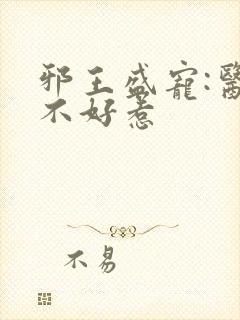 邪王盛寵:醫
不好惹
不易